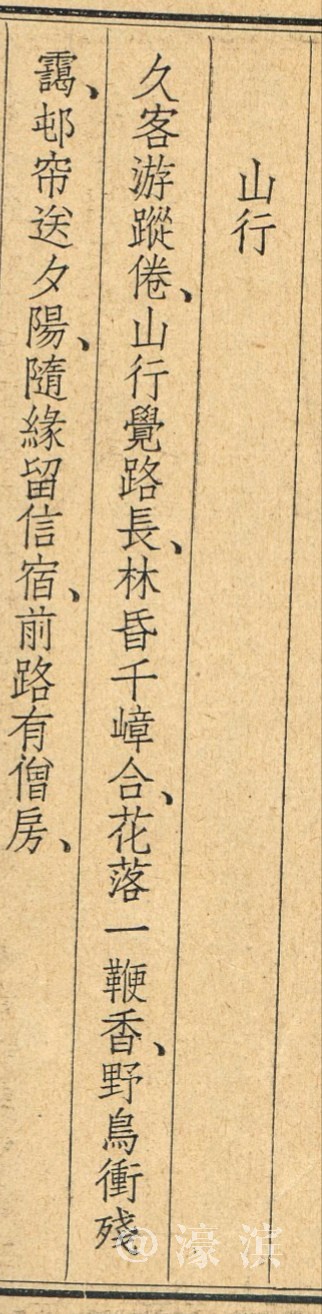 山行
久客游蹤倦、山行覺路長、林昏千嶂合、花落一鞭香、野鳥衝殘
靄、邨帘送夕陽、隨緣留信宿、前路有僧房、
@濠滨